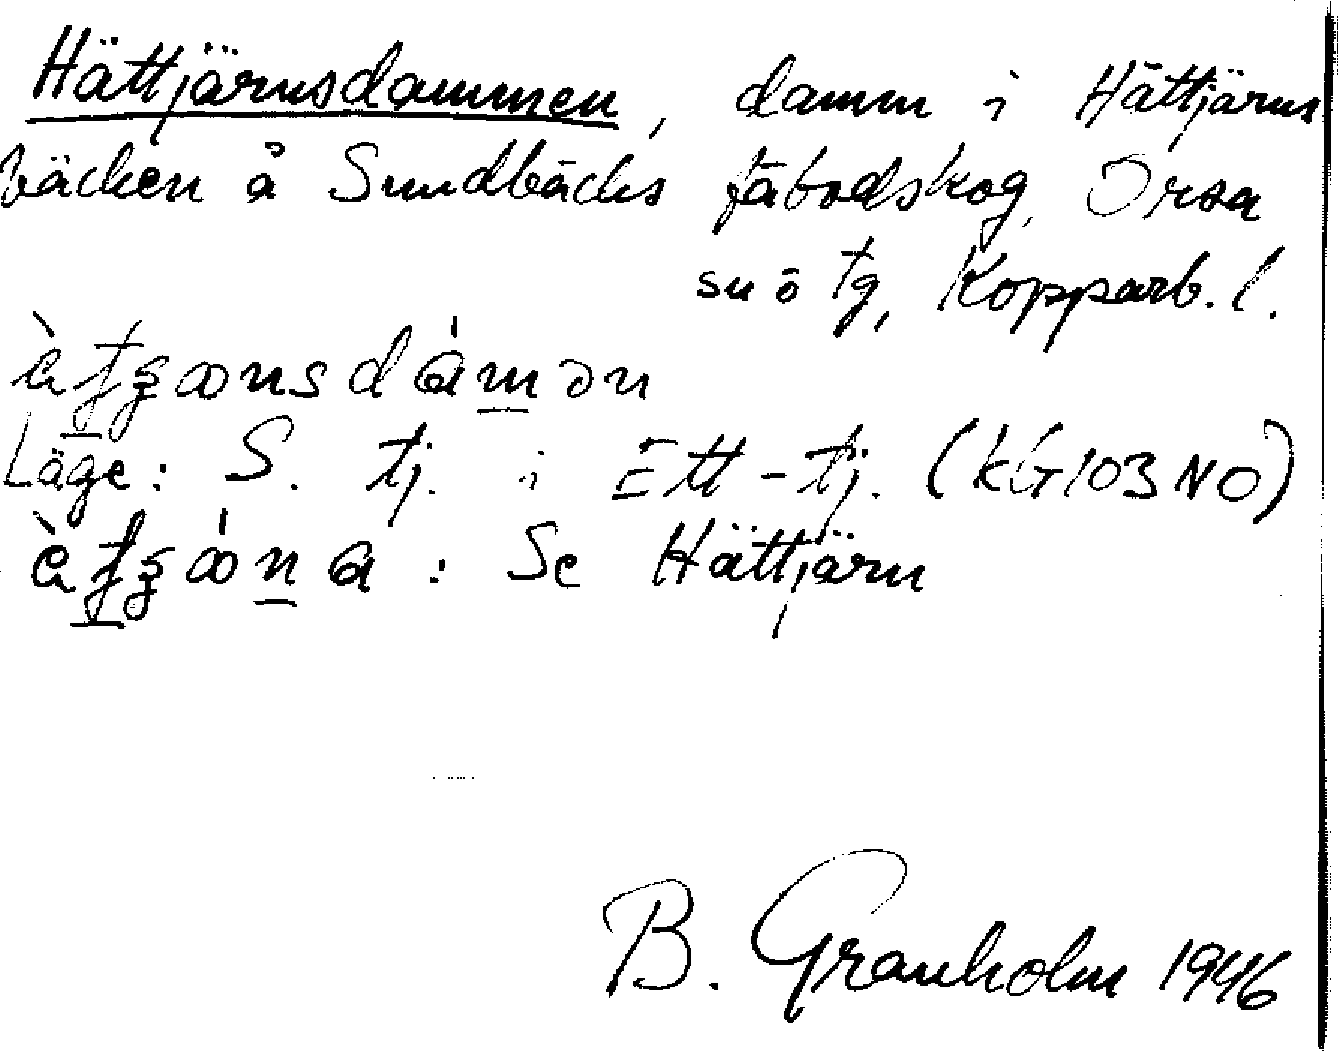 Hättjärnsdammen, damm i Hättjärns
bäcken å Sundbäcks fäbodskog, Orsa
sn ö tg, Kopparb. l.
Läge: S. tj. i Ett-tj. (KG103NO)
: Se Hättjärn
B. Granholm 1946